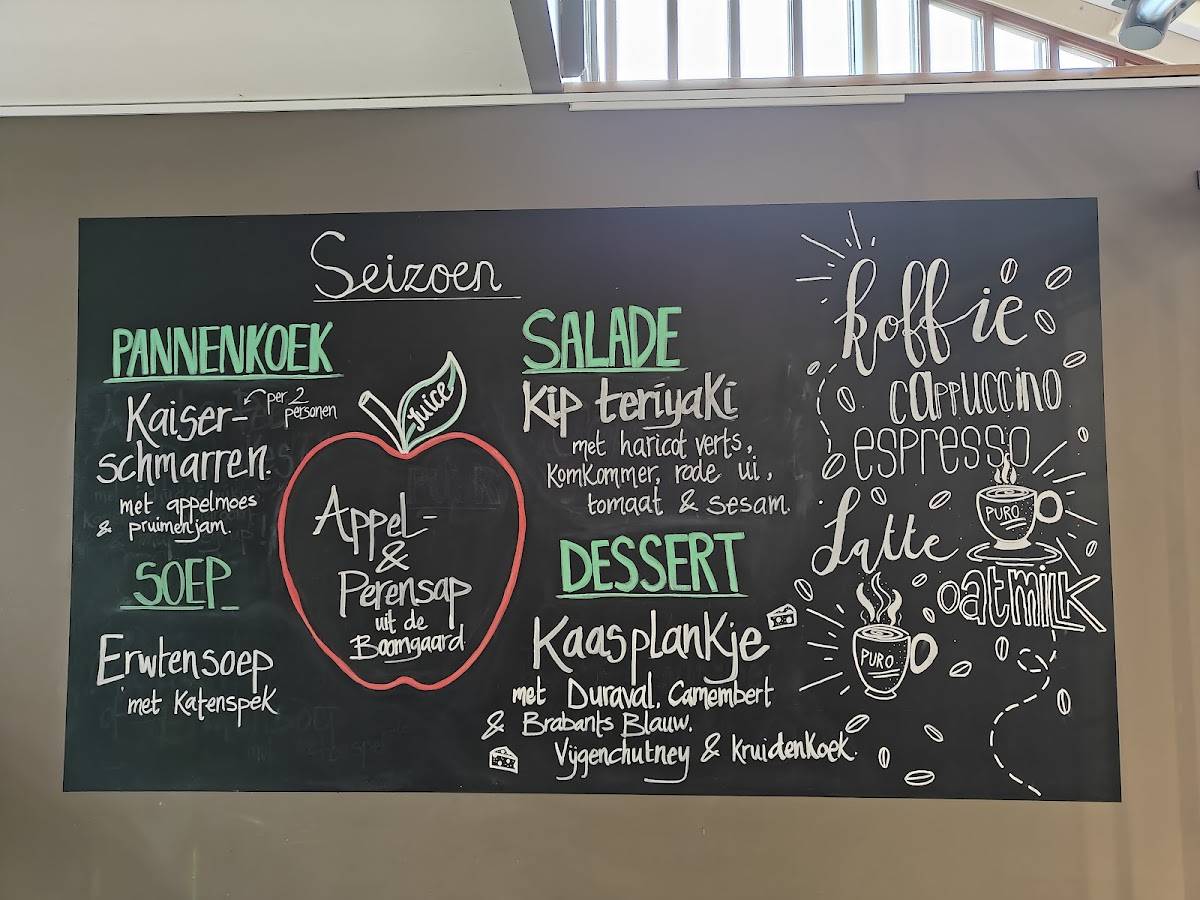 Seizoen
PANNENKOEK
Kaiser-
per 2
personen
schmarren.
met appelmoes
& pruimenjam.
SOEP
Erwtensoep
met Katenspek
Juice
Appel-
&
Perensap
uit de
Boomgaard
SALADE
Kip teriyaki
met haricot verts,
komkommer, rode ui,
tomaat & sesam.
DESSERT
Kaasplankje
met Duraval, Camembert
& Brabants Blauw.
Vijgenchutney & kruidenkoek.
koffie
cappuccino
espresso
PURO
Latte
oatmilk
PURO